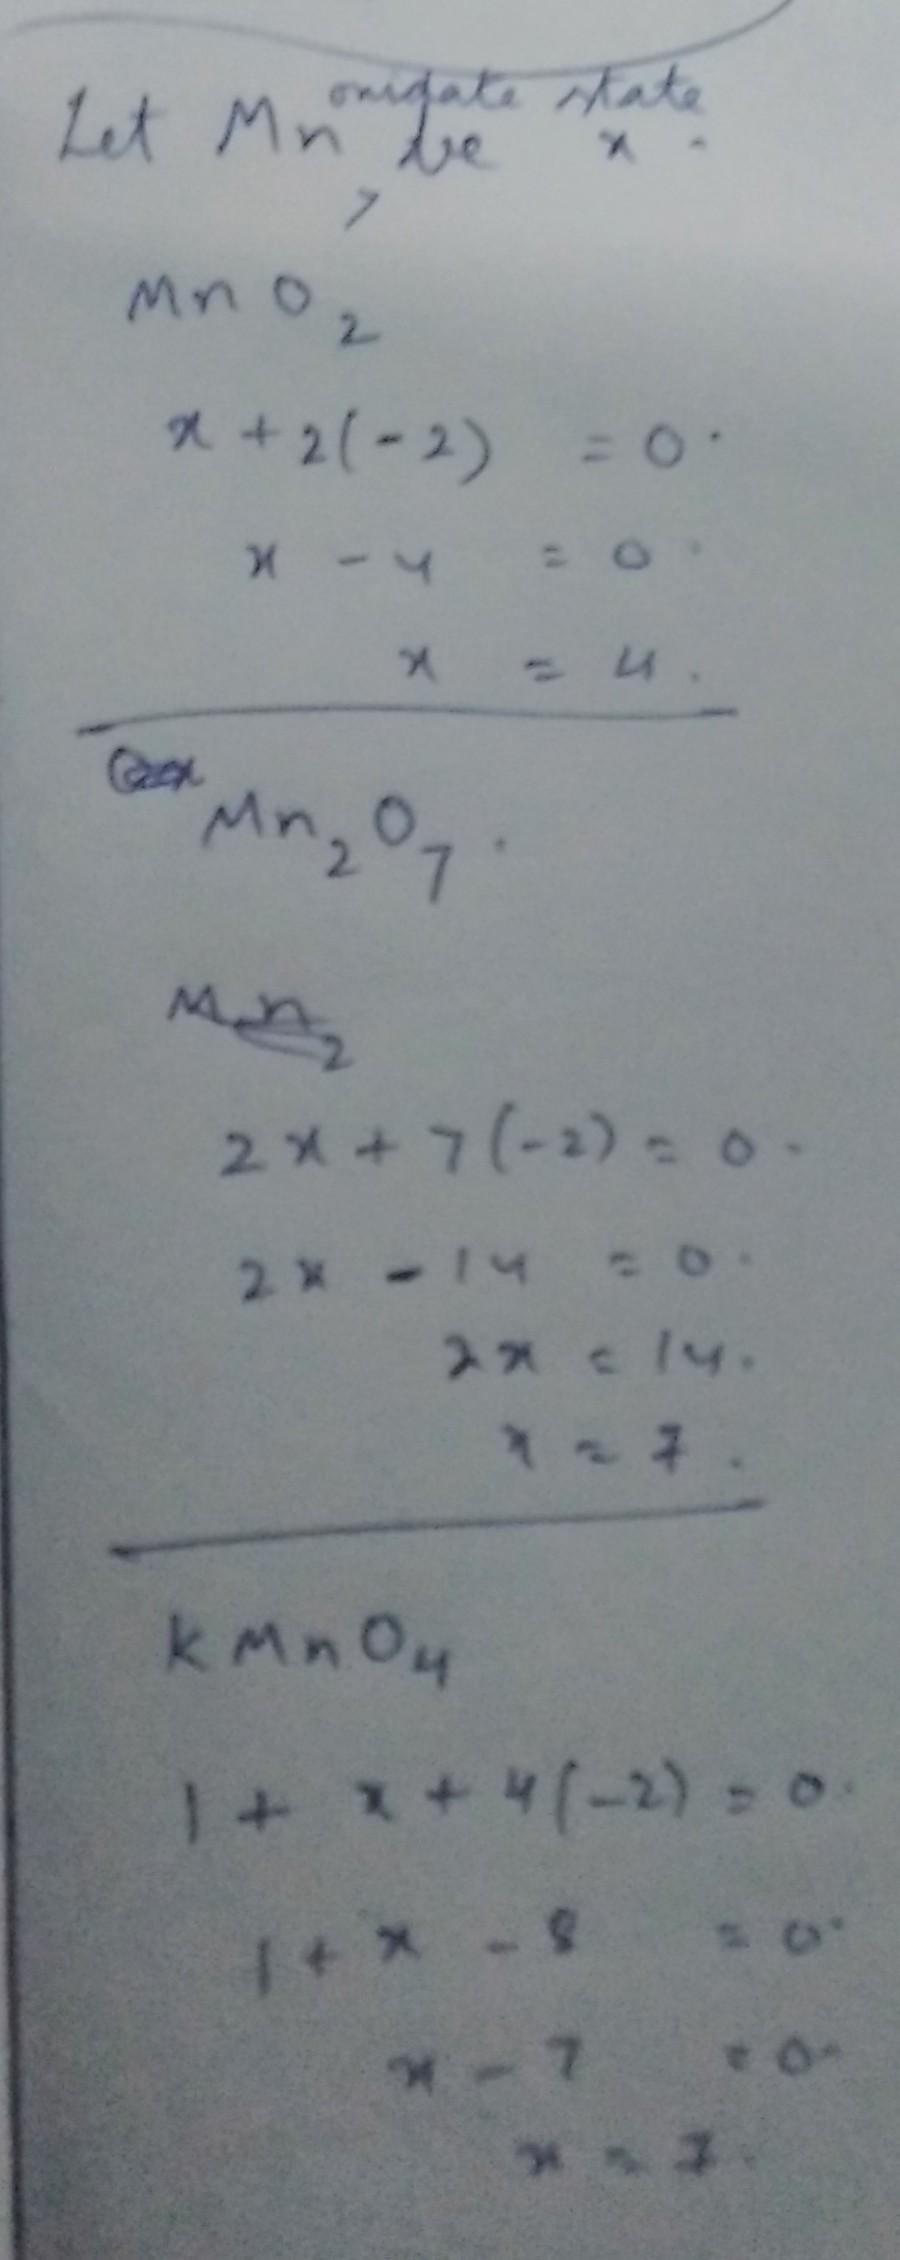 Let Mn oxidate state be x.
MnO₂
x + 2(-2) = 0.
x - 4 = 0.
x = 4.
Mn₂O₇.
Mn₂
2x + 7(-2) = 0.
2x - 14 = 0.
2x = 14.
x = 7.
KMnO₄
1 + x + 4(-2) = 0.
1 + x - 8 = 0.
x - 7 = 0.
x = 7.